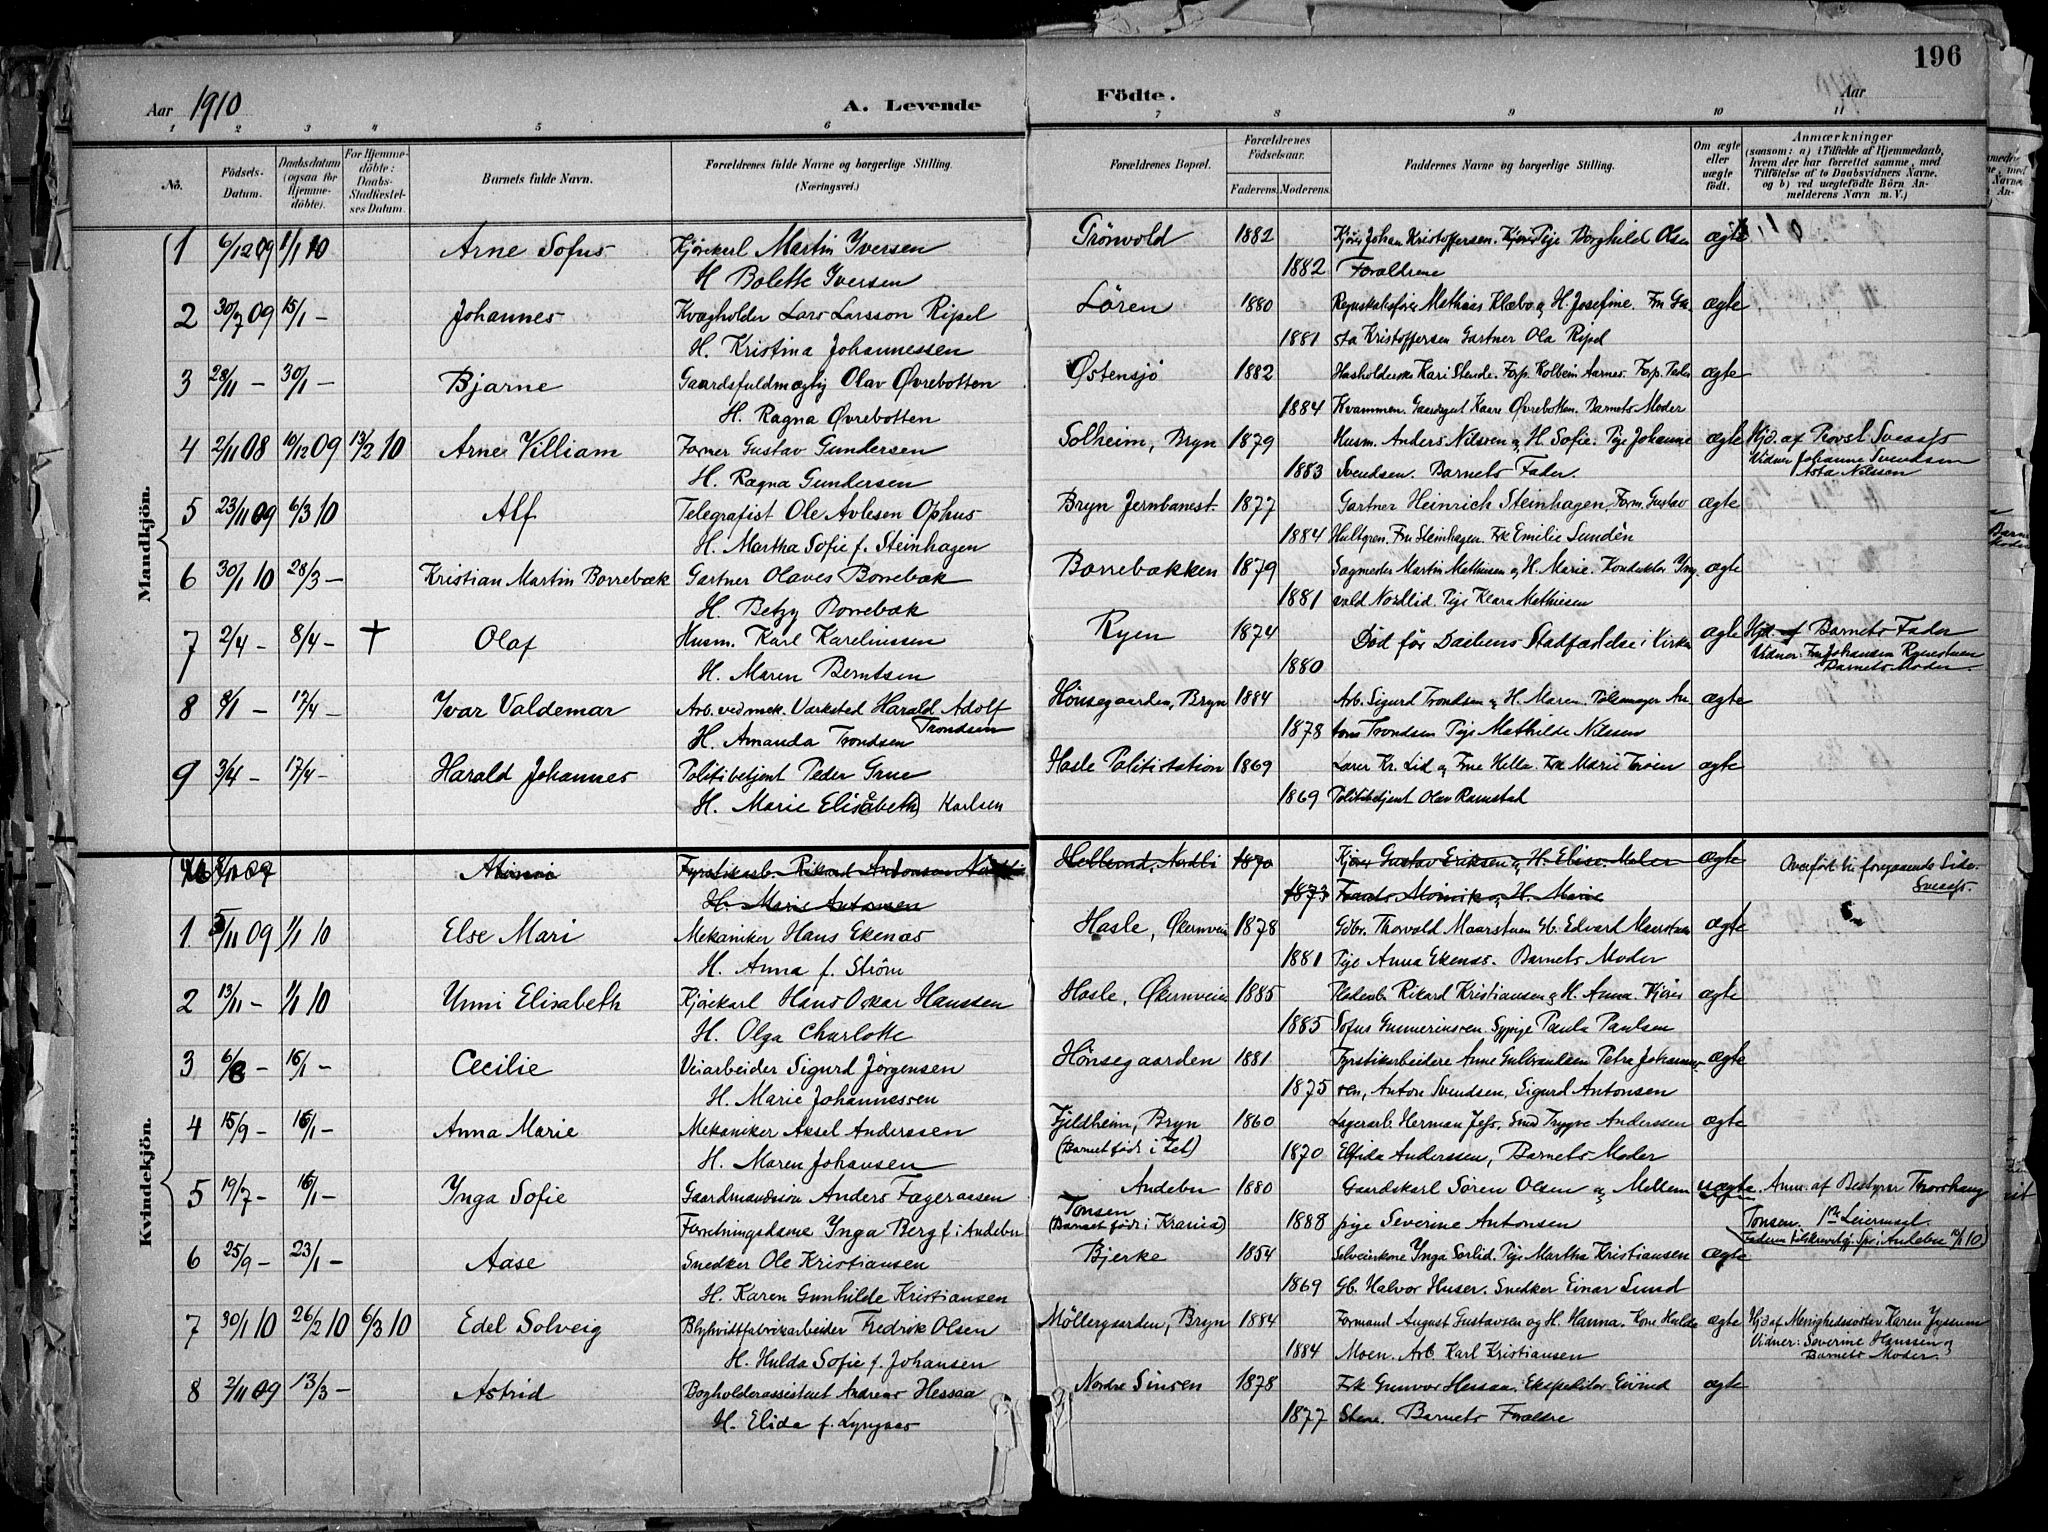 196
Aar 1910 A. Levende Födte. Aar
1 2 3 4 5 6 7 8 9 10 11
No.
Födsels-Datum.
Daabsdatum (ogsaa for Hjemme-döbte).
For Hjemme-döbte: Daabs-Stadfæstel-ses Datum.
Barnets fulde Navn.
Forældrenes fulde Navne og borgerlige Stilling. (Næringsvei.)
Forældrenes Bopæl.
Forældrenes Födselsaar.
Faderens. Moderens.
Faddernes Navne og borgerlige Stilling.
Om ægte eller uægte født.
Anmærkninger
(saasom: a) i Tilfælde af Hjemmedaab, hvem der har forrettet samme, med Tilföielse af to Daabsvidners Navne, og b) ved uægtefödte Börn An-melderens Navn m. V.)
Mandkjön.
1 6/12 09 1/1 10 Arne Sofus Kjørekarl Martin Iversen Grönvold 1882 Kjører Johan Kristoffersen. Pige Borghild Olsen ægte
H. Bolette Iversen 1882 Forældrene
2 30/7 09 15/1 – Johannes Kvægholder Lars Larsson Ripel Lören 1880 Regnskabsfører Mathias Klæbo og H. Josefine. Fru Gu- ægte
H. Kristina Johannessen 1881 sta Kristoffersen Gartner Ola Ripel
3 28/11 – 30/1 – Bjarne Gaardsfuldmægtig Olav Øvrebotten Østensjø 1882 Husholderske Kari Stende. Forp. Kolbein Aarnes. Forp. ægte
H. Ragna Øvrebotten 1884 Kvammen. Kaare Øvrebotten. Barnets Moder
4 2/11 08 16/12 09 13/2 10 Arne Villiam Former Gustav Gundersen Solheim, Bryn 1879 Husm. Anders Nilsen og H. Sofie. Pige Johanne ægte Hjd. af Provst Sveaas
H. Ragna Gundersen 1883 Svendsen. Barnets Fader. Vidner Johanne Svendsen
Asta Nilssen
5 23/11 09 6/3 10 Alf Telegrafist Ole Avlesen Ophus Bryn Jernbanest. 1877 Gartner Heinrich Steinhagen. Form. Gustav ægte
H. Martha Sofie f. Steinhagen 1884 Hultgren. Fru Steinhagen. Frk Emilie Lundén
6 30/1 10 28/3 – Kristian Martin Borrebæk Gartner Olaves Borrebæk Borrebækken 1879 Sagmester Martin Mathisen og H. Marie. Konduktør Yng- ægte
H. Betzy Borrebæk 1881 vald Nordlid. Pige Klara Mathiesen
7 2/4 – 8/4 – † Olaf Husm. Karl Karelinssen Ryen 1874 Død før Daabens Stadfæstelse i Kirken ægte Hjd. af Barnets Fader
H. Maren Berntsen 1880 Vidner: Fru Johansen
Barnets Moder
8 8/1 – 17/4 – Ivar Valdemar Arb. ved mek. Værksted Harald Adolf Trondsen Hönsegaarden, Bryn 1884 Arb. Sigurd Trondsen og H. Maren. An- ægte
H. Amanda Trondsen 1878 tons Trondsen Pige Mathilde Nilsen
9 3/4 – 17/4 – Harald Johannes Politibetjent Peder Grue Hasle Politistation 1869 Lærer Kr. Lid og Frue Hella. Frk Marie ægte
H. Marie Elisabeth Karlsen 1869 Politibetjent Olav Ramstad
Kvindekjön.
Fyrstikarb. Rikard Antonsen Nordbli Hellerud, Nordli 1870 Kjører Gustav Eriksen og H. Elise. Maler ægte Overført til foregaaende Side.
H. Marie Antonsen 1873 H. Marie Sveaas.
1 5/11 09 1/1 10 Else Mari Mekaniker Hans Ekenæs Hasle, Økernveien 1878 Gdbr. Thorvald Maarstuen Gb. Edvard Maarstuen ægte
H. Anna f. Strøm 1881 Pige Anna Ekenæs. Barnets Moder
2 13/11 – 1/1 10 Unni Elisabeth Kjørekarl Hans Oskar Hanssen Hasle, Økernveien 1885 Pladearb. Rikard Kristiansen og H. Anna. Kjører ægte
H. Olga Charlotte 1885 Sofus Gunneriussen. Sypige Paula Paulsen
3 6/8 – 16/1 – Cecilie Veiarbeider Sigurd Jørgensen Hönsegaarden 1881 Fyrstikarbeidere Anne Gulbrandsen Petra Johannes- ægte
H. Marie Johannessen 1875 sen, Anton Svendsen, Sigurd Antonsen
4 15/9 – 16/1 – Anna Marie Mekaniker Aksel Anderssen Fjeldheim, Bryn 1860 Lagerarb. Herman Jess, Smed Trygve Anderssen ægte
H. Maren Johansen (Barnet født i Zet) 1870 Elfida Anderssen, Barnets Moder
5 19/7 – 16/1 – Inga Sofie Gaardmandssøn Anders Fageraasen Andebu 1880 Gaardskarl Sören Olsen og Mellem- uægte. Anm. af Bestyrer Thorshaug
Forretningsdame Ynga Berg f. i Andebu Tonsen (Barnet født i Krania) 1888 pige Severine Antonsen Tonsen. 1ste Leiermaal.
Faderen tilskrevet gj. Spr. i Andebu 10/1 10
6 25/9 – 23/1 – Aase Snedker Ole Kristiansen Bjerke 1854 Selveierkone Ynga Sørlid. Pige Martha Kristiansen ægte
H. Karen Gunhilde Kristiansen 1869 Gb. Halvor Huser. Snedker Einar Lund
7 30/1 10 26/2 10 6/3 10 Edel Solveig Blyhvidtfabrikarbeider Fredrik Olsen Möllergaarden, Bryn 1884 Formand August Gustavsen og H. Hanna. Kone Hulda ægte Hjd af Menighedssøster Karen Jyssum
H. Hulda Sofie f. Johansen 1884 Moen. Arb. Karl Kristiansen Vidner: Severine Hanssen og
Barnets Moder.
8 2/11 09 13/3 – Astrid Bogholderassistent Andreas Hessaa Nordre Sinsen 1878 Frk Gunvor Hessaa. Ekspeditör Eivind ægte
H. Elida f. Lyngaas 1877 Stene. Barnets Forældre